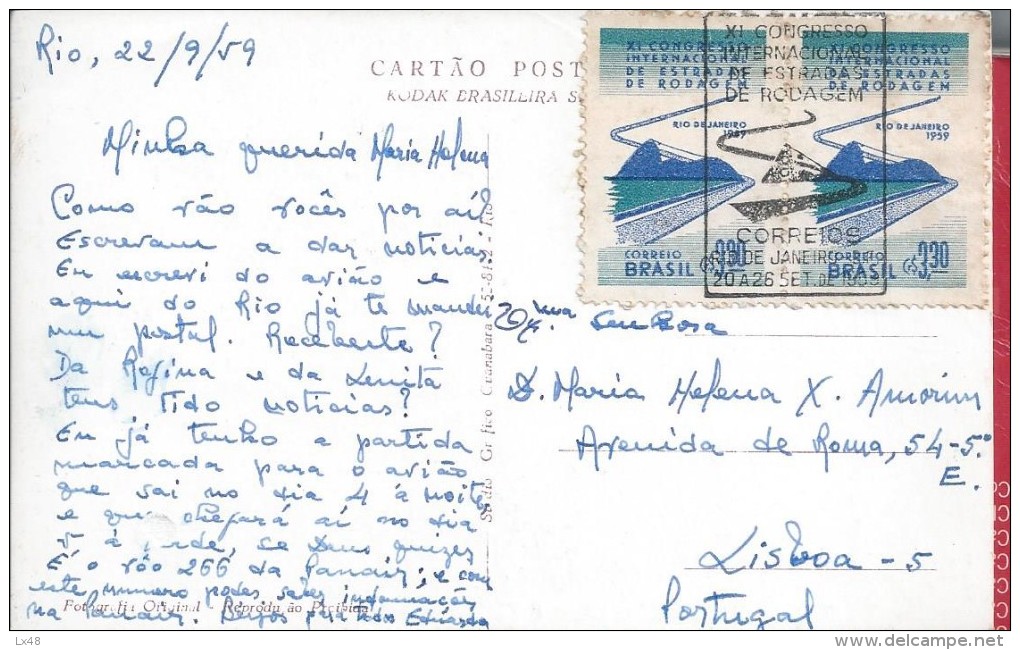 Rio, 22/9/59
CARTÃO POST
KODAK BRASILEIRA S
Minha querida Maria Helena
Como vão vocês por aí?
Escrevam a dar noticias
Eu escrevi do avião e
aqui do Rio já te mandei
um postal. Recebeste?
Da Regina e da Lenita
tens tido noticias?
Eu já tenho a partida
marcada para o avião
que sai no dia 4 à noite
e que chegará aí no dia
5 à tarde, se Deus quizer
É o vôo 266 da Panair; e com
este numero podes saber informações
na Panair. Beijos para todos Eduarda
Fotografia Original - Reprodução Proibida
Gráfico Guanabara
XI CONGRESSO
INTERNACIONAL
DE ESTRADAS
DE RODAGEM
RIO DE JANEIRO
1959
CORREIO
BRASIL 3,30
XI CONGRESSO
INTERNACIONAL
DE ESTRADAS
DE RODAGEM
RIO DE JANEIRO
1959
CORREIO
BRASIL 3,30
XI CONGRESSO
INTERNACIONAL
DE ESTRADAS
DE RODAGEM
CORREIOS
RIO DE JANEIRO
20 A 26 SET. DE 1959
Senhora
D. Maria Helena X. Amorim
Avenida de Roma, 54-5º
E.
Lisboa - 5
Portugal
Lx48
delcampe.net